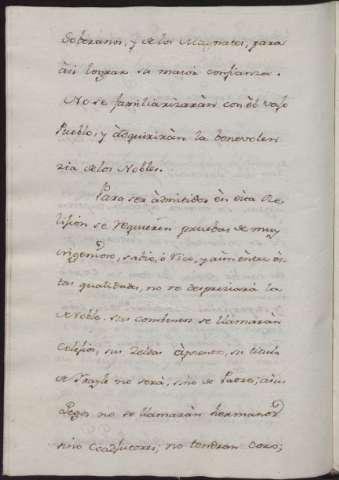 Soberanos, y de los Magnates, para
àsi lograr su maior confianza.
No se familiarizaràn con èl vajo
Pueblo, y àdquiriràn la benevolen
zia de los Nobles.
Para ser àdmitidos èn èsta Re
lision se requieren pruebas de muy
ingenioso, sabio, ò rico, y aùn èntre és
tas qualidades, no se despreziarà la
de Noble. sus combentos se llamaràn
Colesios, sus Zeldas àposentos, su titulo
de Frayle no serà, sino de Padre; àsus
Legos no se llamaràn hermanos
sino Coadjutores; no tendran coro;